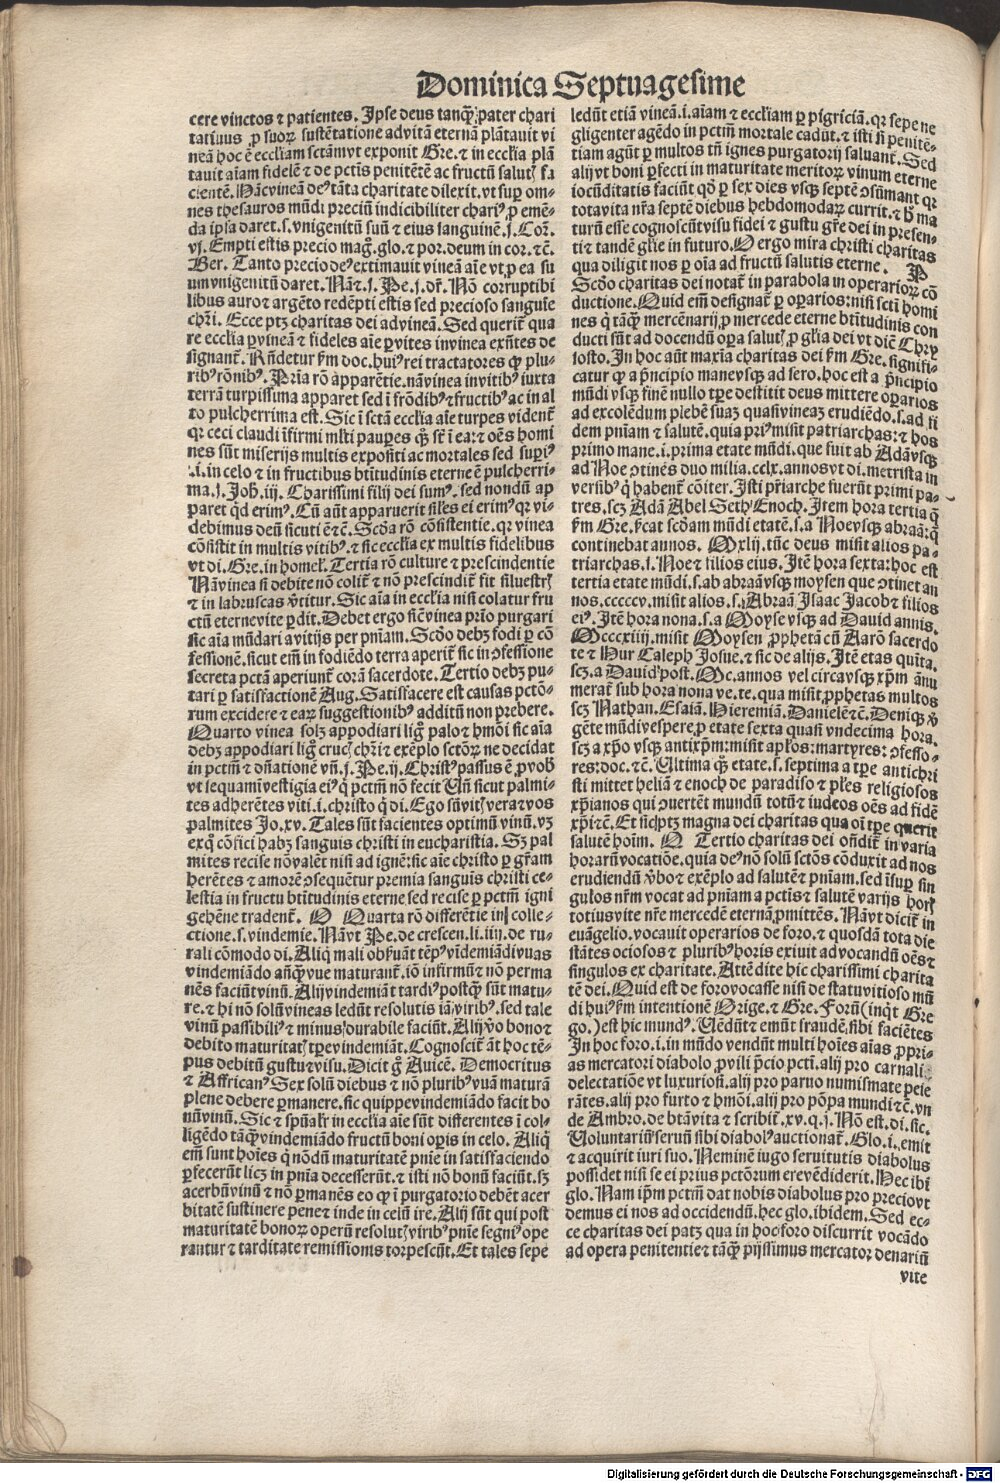 Dominica Septuagesime
cere vinctos ⁊ patientes. Ipse deus tanq̃ pater chari
tatiuus ꝓ suoꝝ sustẽtatione ad vitã eternã plãtauit vi
neã hoc ẽ eccl̃iam sctãm vt exponit Gre. ⁊ in eccl̃ia plã
tauit aiam fidelẽ ⁊ de pctĩs penitẽtẽ ac fructũ salutꝭ fa
cientẽ. Nãc vineã deꝰ tãta charitate dilexit. vt suꝑ om-
nes thesauros mũdi preciũ indicibiliter chariꝰ ꝓ emẽ-
da ipsa daret. s. vnigenitũ suũ ⁊ eius sanguinẽ. j. Cor̃.
vj. Empti estis precio mag̃. glo. ⁊ por. deum in cor. ⁊c̃.
Ber. Tanto precio deꝰ extimauit vineã aie vt ꝓ ea su
um vnigenitũ daret. Nã ⁊. j. Pe. j. dr̃. Nõ corruptibi
libus auro ⁊ argẽto redẽpti estis sed precioso sanguie
chr̃i. Ecce ptꝫ charitas dei ad vineã. Sed querit̃ qua
re ecclia ꝑ vineã ⁊ fideles aie ꝑ vites in vinea exñtes de
signant̃. Rñdetur ẜm doc. huiꝰ rei tractatores ꝙ plu-
ribꝰ rõnibꝰ. Pria rõ apparẽtie. nã vinea in vitibꝰ iuxta
terrã turpissima apparet sed ĩ frõdibꝰ ⁊ fructibꝰ ac in al
to pulcherrima est. Sic ĩ sctã ecclia aie turpes vident̃
qꝛ ceci claudi ĩfirmi ml̃ti pauꝑes qͣ̃ sr̃ ĩ ea: ⁊ oẽs homi
nes sũt miserijs multis expositi ac mortales sed suꝑiꝰ
.i. in celo ⁊ in fructibus btĩtudinis eterne ẽ pulcherri-
ma. j. Joh̃. iij. Charissimi filij dei sumꝰ. sed nondũ ap
paret qd erimꝰ. Cũ aũt apparuerit sil̃es ei erimꝰ qꝛ vi-
debimus deũ sicuti ẽ ⁊c̃. Scd̃a rõ cõsistentie. qꝛ vinea
cõsistit in multis vitibꝰ. ⁊ sic eccl̃ia ex multis fidelibus
vt di. Gre. in homel̃. Tertia rõ culture ⁊ prescindentie
Nã vinea si debite nõ colit̃ ⁊ nõ prescindit̃ fit siluestrꝭ
⁊ in labruscas ṽtitur. Sic aia in ecclia nisi colatur fru
ctũ eterne vite ꝑdit. Debet ergo sic̃ vinea prĩo purgari
sic aia mũdari a vitijs per pniam. Scd̃o debꝫ fodi ꝑ cõ
fessionẽ. sicut em̃ in fodiẽdo terra aperit̃ sic in ꝯfessione
secreta pctã aperiunt̃ corã sacerdote. Tertio debꝫ pu-
tari ꝑ satisfactionẽ Aug. Satisfacere est causas pctõ-
rum excidere ⁊ earꝫ suggestionibꝰ additũ non prebere.
Quarto vinea solꝫ appodiari ligͦ palo ⁊ hmõi sic aia
debꝫ appodiari ligͦ crucꝭ chr̃i ⁊ exẽplo sctõꝝ ne decidat
in pctm̃ ⁊ dñationẽ vñ. j. Pe. ij. Christꝰ passus ẽ ꝓ vobꝭ
vt sequamĩ vestigia eiꝰ q̃ pctm̃ nõ fecit Uñ sicut palmi-
tes adherẽtes viti .i. christo q̃ di. Ego sũ vitꝭ vera ⁊ vos
palmites Jo. xv. Tales sũt facientes optimũ vinũ. vꝫ
ex qͦ cõfici habꝫ sanguis christi in eucharistia. Sꝫ pal
mites recise nõ valẽt nisi ad ignẽ: sic aie christo ꝑ gr̃am
herẽtes ⁊ amorẽ ꝯsequẽtur premia sanguis christi ce-
lestia in fructu btĩtudinis eterne sed recise ꝑ pctm̃ igni
gehẽne tradent̃. O Quarta rõ differẽtie in colle-
ctione. s. vindemie. Nã vt Pe. de crescen. li. iiij. de ru-
rali cõmodo di. Aliq̃ mali obẜuant tẽpꝰ vĩdemiãdi vuas
vindemiãdo añq̃ vue maturant̃. iõ infirmũ ⁊ nõ perma
nẽs faciũt vinũ. Alij vindemiãt tardiꝰ postq̃ sũt matu-
re. ⁊ hi nõ solũ vineas ledũt resolutis iã viribꝰ. sed tale
vinũ passibiliꝰ ⁊ minus durabile faciũt. Alij ṽo bono ⁊
debito maturitatꝭ tꝑe vindemiãt. Cognoscit̃ ãt hoc tẽ-
pus debitũ gustu ⁊ visu. Dicit gͦ Auicẽ. Democritus
⁊ Affricanꝰ Sex solũ diebus ⁊ nõ pluribꝰ vuã maturã
plene debere ꝑmanere. sic quippe vindemiãdo facit bo
nũ vinũ. Sic ⁊ spũalr̃ in eccl̃ia aie sũt differentes ĩ col-
ligẽdo tãq̃ vindemiãdo fructũ boni oꝑis in celo. Aliq̃
em̃ sunt hoĩes q̃ nõdũ maturitatẽ pnĩe in satisfaciendo
ꝑfecerũt licꝫ in pnĩa decesserũt. ⁊ isti nõ bonũ faciũt. sꝫ
acerbũ vinũ ⁊ nõ ꝑmanẽs eo ꝙ ĩ purgatorio debẽt acer
bitatẽ sustinere pene ⁊ inde in celũ ire. Alij sũt qui post
maturitatẽ bonoꝝ operũ resolutꝭ viribꝰ pnĩe segniꝰ ope
rantur ⁊ tarditate remissionis torpescũt. Et tales sepe
ledũt etiã vineã .i. aiam ⁊ eccl̃iam ꝑ pigriciã. qꝛ sepe ne
gligenter agẽdo in pctm̃ mortale cadũt. ⁊ isti si penitẽ-
tiam agũt ꝑ multos tñ ignes purgatorij saluant̃. Sed
alij vt boni ꝑfecti in maturitate meritoꝝ vinum eterne
iocũditatis faciũt qd̃ ꝑ sex dies vsqꝫ septẽ ꝯsũmant qꝛ
tota vita nr̃a septẽ diebus hebdomodaꝝ currit. ⁊ hͦ ma
turũ esse cognoscũt visu fidei ⁊ gustu gr̃e dei in presen-
ti ⁊ tandẽ gl̃ie in futuro. O ergo mira christi charitas
qua diligit nos ꝑ oĩa ad fructũ salutis eterne. P
Scd̃o charitas dei notat̃ in parabola in operarioꝝ cõ
ductione. Quid em̃ designat̃ ꝑ oꝑarios: nisi sctĩ homi
nes q̃ tãq̃ mercẽnarij ꝓ mercede eterne btĩtudinis con
ducti sũt ad docendũ oꝑa salutꝭ ꝓ gl̃ia dei vt diẽ Chry
sosto. In hoc aũt maxĩa charitas dei ẜm Gre. signifi-
catur ꝙ a pͥncipio mane vsqꝫ ad sero. hoc est a pͥncipio
mũdi vsqꝫ finẽ nullo tꝑe destitit deus mittere oꝑarios
ad excolẽdum plebẽ suaꝫ quasi vineaꝫ erudiẽdo. s. ad fi
dem pniam ⁊ salutẽ. quia priꝰ misit patriarchas: ⁊ hos
primo mane .i. prima etate mũdi. que fuit ab Adã vsqꝫ
ad Noe ꝯtinẽs duo milia. cclx. annos vt di. metrista in
versibꝰ q̃ habent̃ cõiter. Isti pr̃iarche fuerũt primi pa-
tres. scꝫ Adã Abel Seth Enoch. Item hora tertia q̃
ẜm Gre. ẜcat scd̃am mũdi etatẽ. s. a Noe vsqꝫ abraã: q̃
continebat annos. Mxlij. tũc deus misit alios pa-
triarchas. s. Noe ⁊ filios eius. Itẽ hora sexta: hoc est
tertia etate mũdi. s. ab abraã vsqꝫ moysen que ꝯtinet an
nos. cccccv. misit alios. s. Abraã Isaac Jacob ⁊ filios
eiꝰ. Itẽ hora nona. s. a Moyse vsqꝫ ad Dauid annis.
Mcccxiiij. misit Moysen ꝓphetã cũ Aarõ sacerdo
te ⁊ Hur Caleph Josue. ⁊ sic de alijs. Itẽ etas quĩta.
scꝫ. a Dauid post. Mc. annos vel circa vsqꝫ xp̃m ãnu
merat̃ sub hora nona ve. te. qua misit ꝓphetas multos
scꝫ Nathan. Esaiã. Hieremiã. Danielẽ ⁊c̃. Deniqꝫ ṽ
gẽte mũdi vespere ꝓ etate sexta quasi vndecima hora.
scꝫ a xp̃o vsqꝫ antixp̃m: misit apl̃os: martyres: ꝯfesso-
res: doc. ⁊c̃. Ultima qͣꝫ etate. s. septima a tꝑe antichri
sti mittet heliã ⁊ enoch de paradiso ⁊ ples religiosos
xp̃ianos qui ꝯuertẽt mundũ totũ ⁊ iudeos oẽs ad fidẽ
xp̃i ⁊c̃. Et sic ptꝫ magna dei charitas qua oĩ tꝑe querit
salutẽ hoĩm. Q Tertio charitas dei oñdit̃ in varia
horarũ vocatiõe. quia deꝰ nõ solũ sctõs cõduxit ad nos
erudiendũ ṽbo ⁊ exẽplo ad salutẽ ⁊ pniam. sed ĩsuꝑ sin
gulos nr̃m vocat ad pniam a pctĩs ⁊ salutẽ varijs horꝭ
totius vite nr̃e mercedẽ eternã ꝓmittẽs. Nã vt dicit̃ in
euãgelio. vocauit operarios de foro. ⁊ quosdã tota die
stãtes ociosos ⁊ pluribꝰ horis exiuit ad vocandũ oẽs ⁊
singulos ex charitate. Attẽdite hic charissimi charita
tẽ dei. Quid est de foro vocasse nisi de statu vitioso mũ
di huiꝰ ẜm intentionẽ Orige. ⁊ Gre. Forũ (inq̃t Gre
go.) est hic mundꝰ. Uẽdũt ⁊ emũt fraudẽ. sibi faciẽtes
In hoc foro .i. in mũdo vendũt multi hoĩes aĩas ꝓpri-
as mercatori diabolo ꝓ vili p̃cio pctĩ. alij pro carnali
delectatiõe vt luxuriosi. alij pro paruo numismate peie
rãtes. alij pro furto ⁊ hmõi. alij pro põpa mundi ⁊c̃. vn
de Ambro. de btã vita ⁊ scribit̃. xv. q. j. Nõ est. di. sic.
Uoluntariũ seruũ sibi diabolꝰ auctionat̃. Glo. i. emit
⁊ acquirit iuri suo. Neminẽ iugo seruitutis diabolus
possidet nisi se ei prius pctõrum ere vẽdiderit. Hec ibi
glo. Nam ip̃m pctm̃ dat nobis diabolus pro precio vt
demus ei nos ad occidendũ. hec glo. ibidem. Sed ec-
ce charitas dei patꝫ qua in hoc foro discurrit vocãdo
ad opera penitentie ⁊ tãq̃ pijssimus mercator denariũ
vite
Digitalisierung gefördert durch die Deutsche Forschungsgemeinschaft - DFG